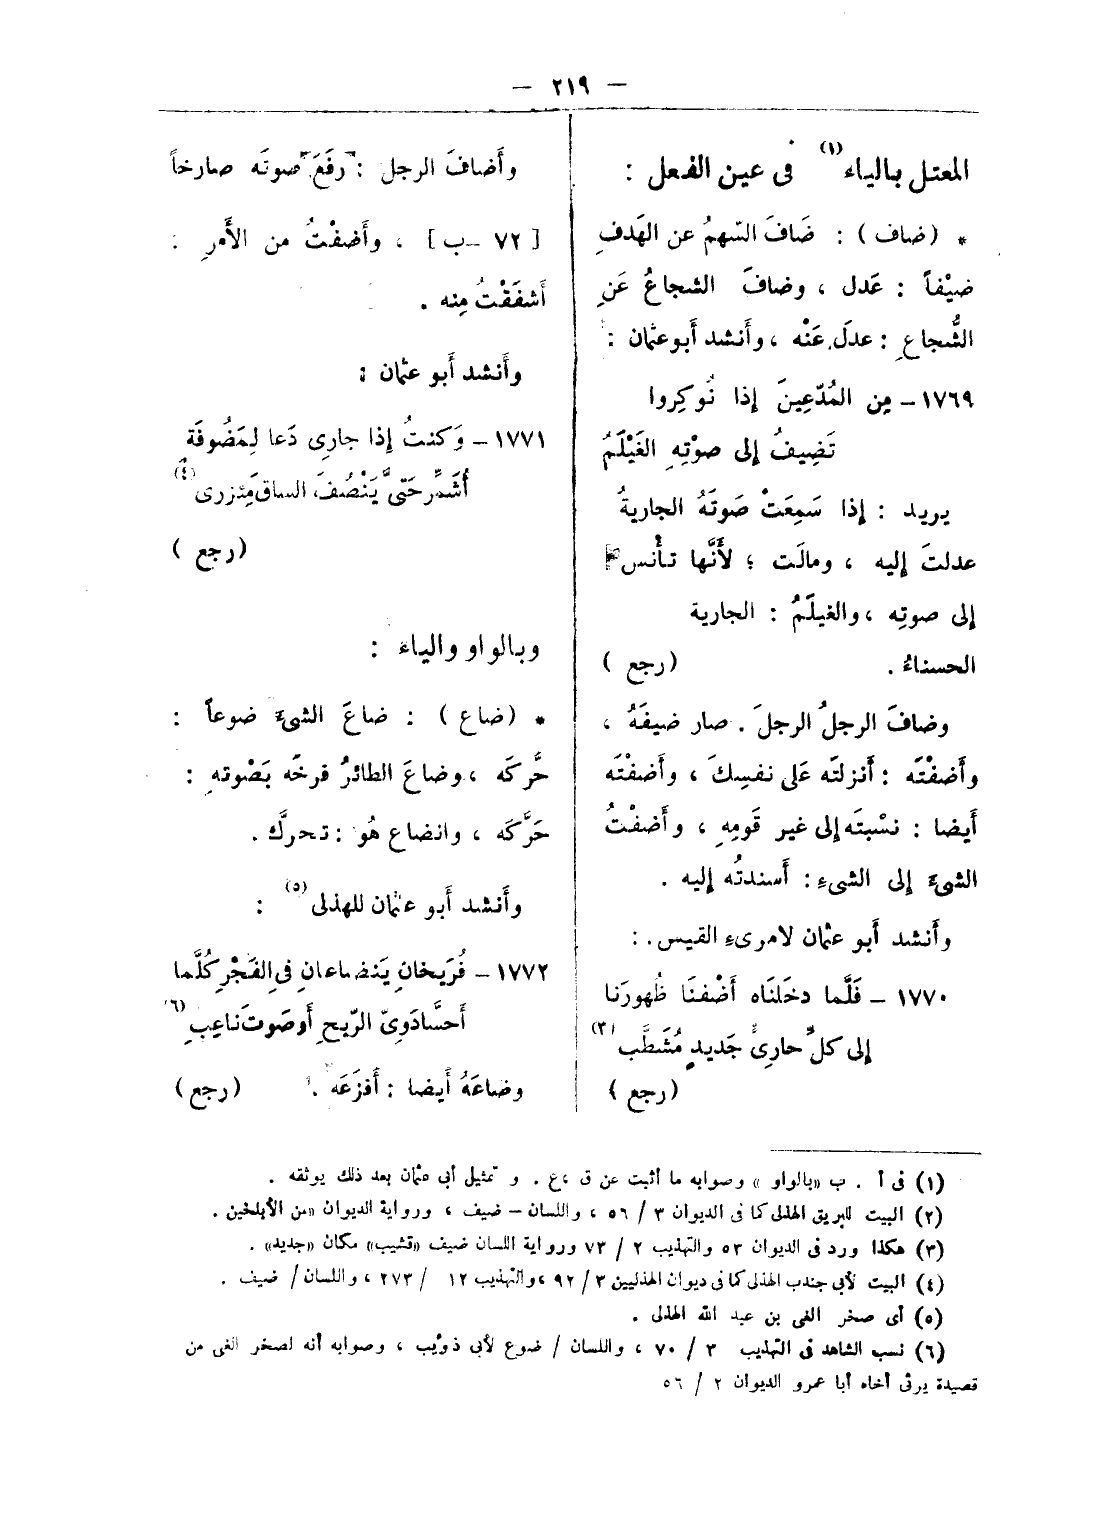 — ٢١٩ —
المعتل بالياء (١) فى عين الفعل :
* (ضاف) : ضَافَ السّهمُ عن الهَدفِ
ضيْفاً : عَدل ، وضافَ الشجاعُ عَنِ
الشُّجاعِ : عدلَ عَنْه ، وأَنشد أَبوعثمان :
١٧٦٩ – مِن المُدّعِينَ إِذا نُوكِروا
تَضِيفُ إِلى صوْتِهِ الغَيْلَمُ
يريد : إِذا سَمِعَتْ صَوتَهُ الجاريةُ
عدلتَ إِليه ، ومالَت ؛ لأَنَّها تأْنس
إِلى صوتِه ، والغيلَمُ : الجارية
الحسناءُ . (رجع)
وضافَ الرجلُ الرجلَ . صار ضيفَهُ ،
وأَضفْتَه : أَنزلتَه عَلى نفسِكَ ، وأَضفْتَه
أَيضا : نسْبتَه إِلى غير قَومِهِ ، وأَضفْتُ
الشىءَ إِلى الشىءِ : أَسندتُه إِليه .
وأَنشد أَبو عثمان لامرىءِ القيس . :
١٧٧٠ – فَلَّما دخلنَاه أَضْفنَا ظُهورَنا
إِلى كلِّ حارِىٍّ جَديدٍ مُشَطَّبِ (٣)
(رجع)
وأَضافَ الرجل : رفَعَ صوتَه صارخاً
[ ٧٢ – ب ] ، وأَضفْتُ من الأَمرِ :
أَشفَقْتُ مِنه .
وأَنشد أَبو عثمان :
١٧٧١ – وَكنتُ إِذا جارِى دَعا لِمَضُوفَةٍ
أُشَمِّر حَتَّى يَنْصُفَ الساق مِئزرى (٤)
(رجع)
وبالواو والياء :
* (ضاع) : ضاعَ الشىءَ ضوعاً :
حَّركَه ، وضاعَ الطائرُ فرخَه بَصْوتهِ :
حَرَّكَه ، وانضاع هُو : تحرَّك .
وأَنشد أَبو عثمان للهذلى (٥) :
١٧٧٢ – فُرَيخانِ يَنضاعانِ فىِ الفَجْرِ كُلَّما
أَحسَّا دَوِىّ الرِّيح أَوصَوتَ ناعِبِ (٦)
وضاعَهُ أَيضا : أَفزَعَه . (رجع)
(١) فى أ . ب «بالواو» وصوابه ما أثبت عن ق ،ع . و تمثيل أبى عثمان بعد ذلك يوثقه .
(٢) البيت للبريق الهذلى كما فى الديوان ٣ / ٥٦ ، واللسان – ضيف ، ورواية الديوان «من الأبلخين .
(٣) هكذا ورد فى الديوان ٥٣ والتهذيب ٢ / ٧٣ ورواية اللسان ضيف «قشيب» مكان «جديد» .
(٤) البيت لأبى جندب الهذلى كما فى ديوان الهذليين ٣ / ٩٢ ،والتهذيب ١٢ / ٢٧٣ ، واللسان / ضيف .
(٥) أى صخر الغى بن عبد الله الهذلى .
(٦) نسب الشاهد فى التهذيب ٣ / ٧٠ ، واللسان / ضوع لأبى ذؤيب ، وصوابه أنه لصخر الغى من
قصيدة يرثى أخاه أبا عمرو الديوان ٢ / ٥٦